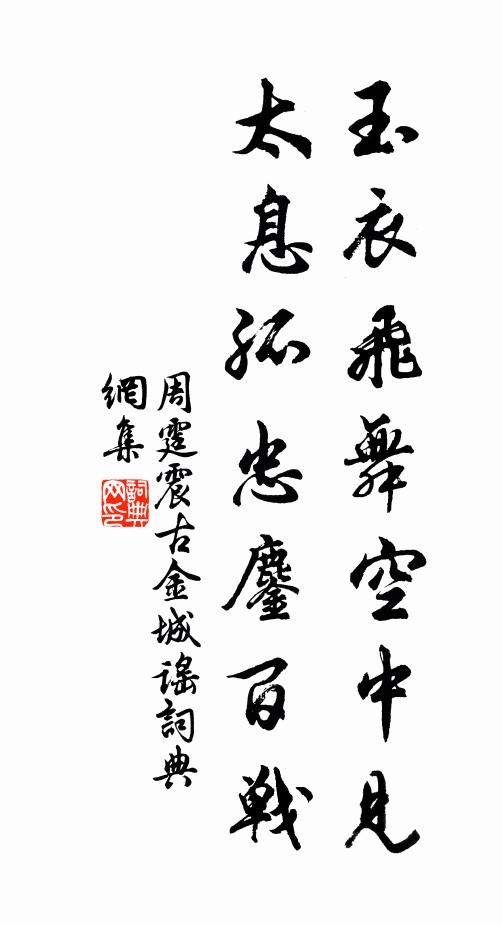 玉衣飛舞空中見
太息孤忠鏖百戰
周霆震古金城謠詞典
網集
詞典網印